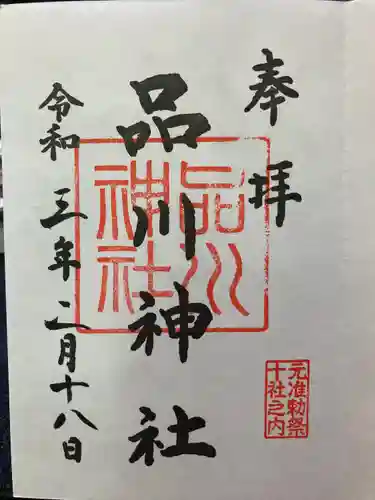 奉拝
品川神社
品川神社
元准勅祭
十社之内
令和三年二月十八日